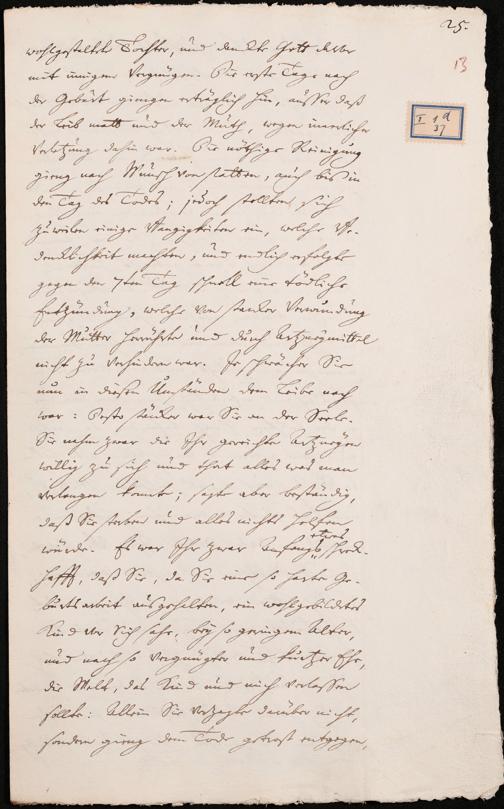 25.
13
I 1 d
37
wohlgestalteten Tochter, und dankte Gott dafür
mit innigem Vergnügen. Die erste Tage nach
der Geburt giengen erträglich hin, ausser daß
der Leib matt und der Muth, wegen innerlicher
Verletzung dahin war. Die nöthige Reinigung
gieng nach Wunsch von statten, auch bis in
den Tag des Todes; jedoch stellten sich
zuweilen einige Bangigkeiten ein, welche
denklichkeit machten, und endlich erfolgte
gegen den 7ten Tag schnell eine tödliche
Entzündung, welche von starker Verwundung
der Mutter herrührte und durch Artzneymittel
nicht zu verhindern war. Je schwächer Sie
nun in diesen Umständen dem Leibe nach
war: desto stärker war Sie an der Seele.
Sie nahm zwar die Ihr gereichte Artzneyen
willig zu sich und that alles was man
verlangen konnte; sagte aber beständig,
daß Sie sterben und alles nichts helfen
würde. Es war Ihr zwar Anfangs etwas schreck-
hafft, daß Sie, da Sie eine so harte Ge-
burtsarbeit ausgehalten, ein wohlgebildetes
Kind vor Sich sahe, bey so geringem Alter,
und nach so vergnügter und kurtzer Ehe,
die Welt, das Kind und mich verlassen
sollte: Allein Sie verzagte darüber nicht,
sondern gieng dem Tode getrost entgegen,